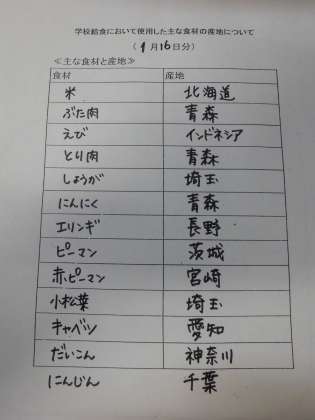 学校給食において使用した主な食材の産地について
(1月16日分)
≪主な食材と産地≫
食材 産地
米 北海道
ぶた肉 青森
えび インドネシア
とり肉 青森
しょうが 埼玉
にんにく 青森
エリンギ 長野
ピーマン 茨城
赤ピーマン 宮崎
小松菜 埼玉
キャベツ 愛知
だいこん 神奈川
にんじん 千葉